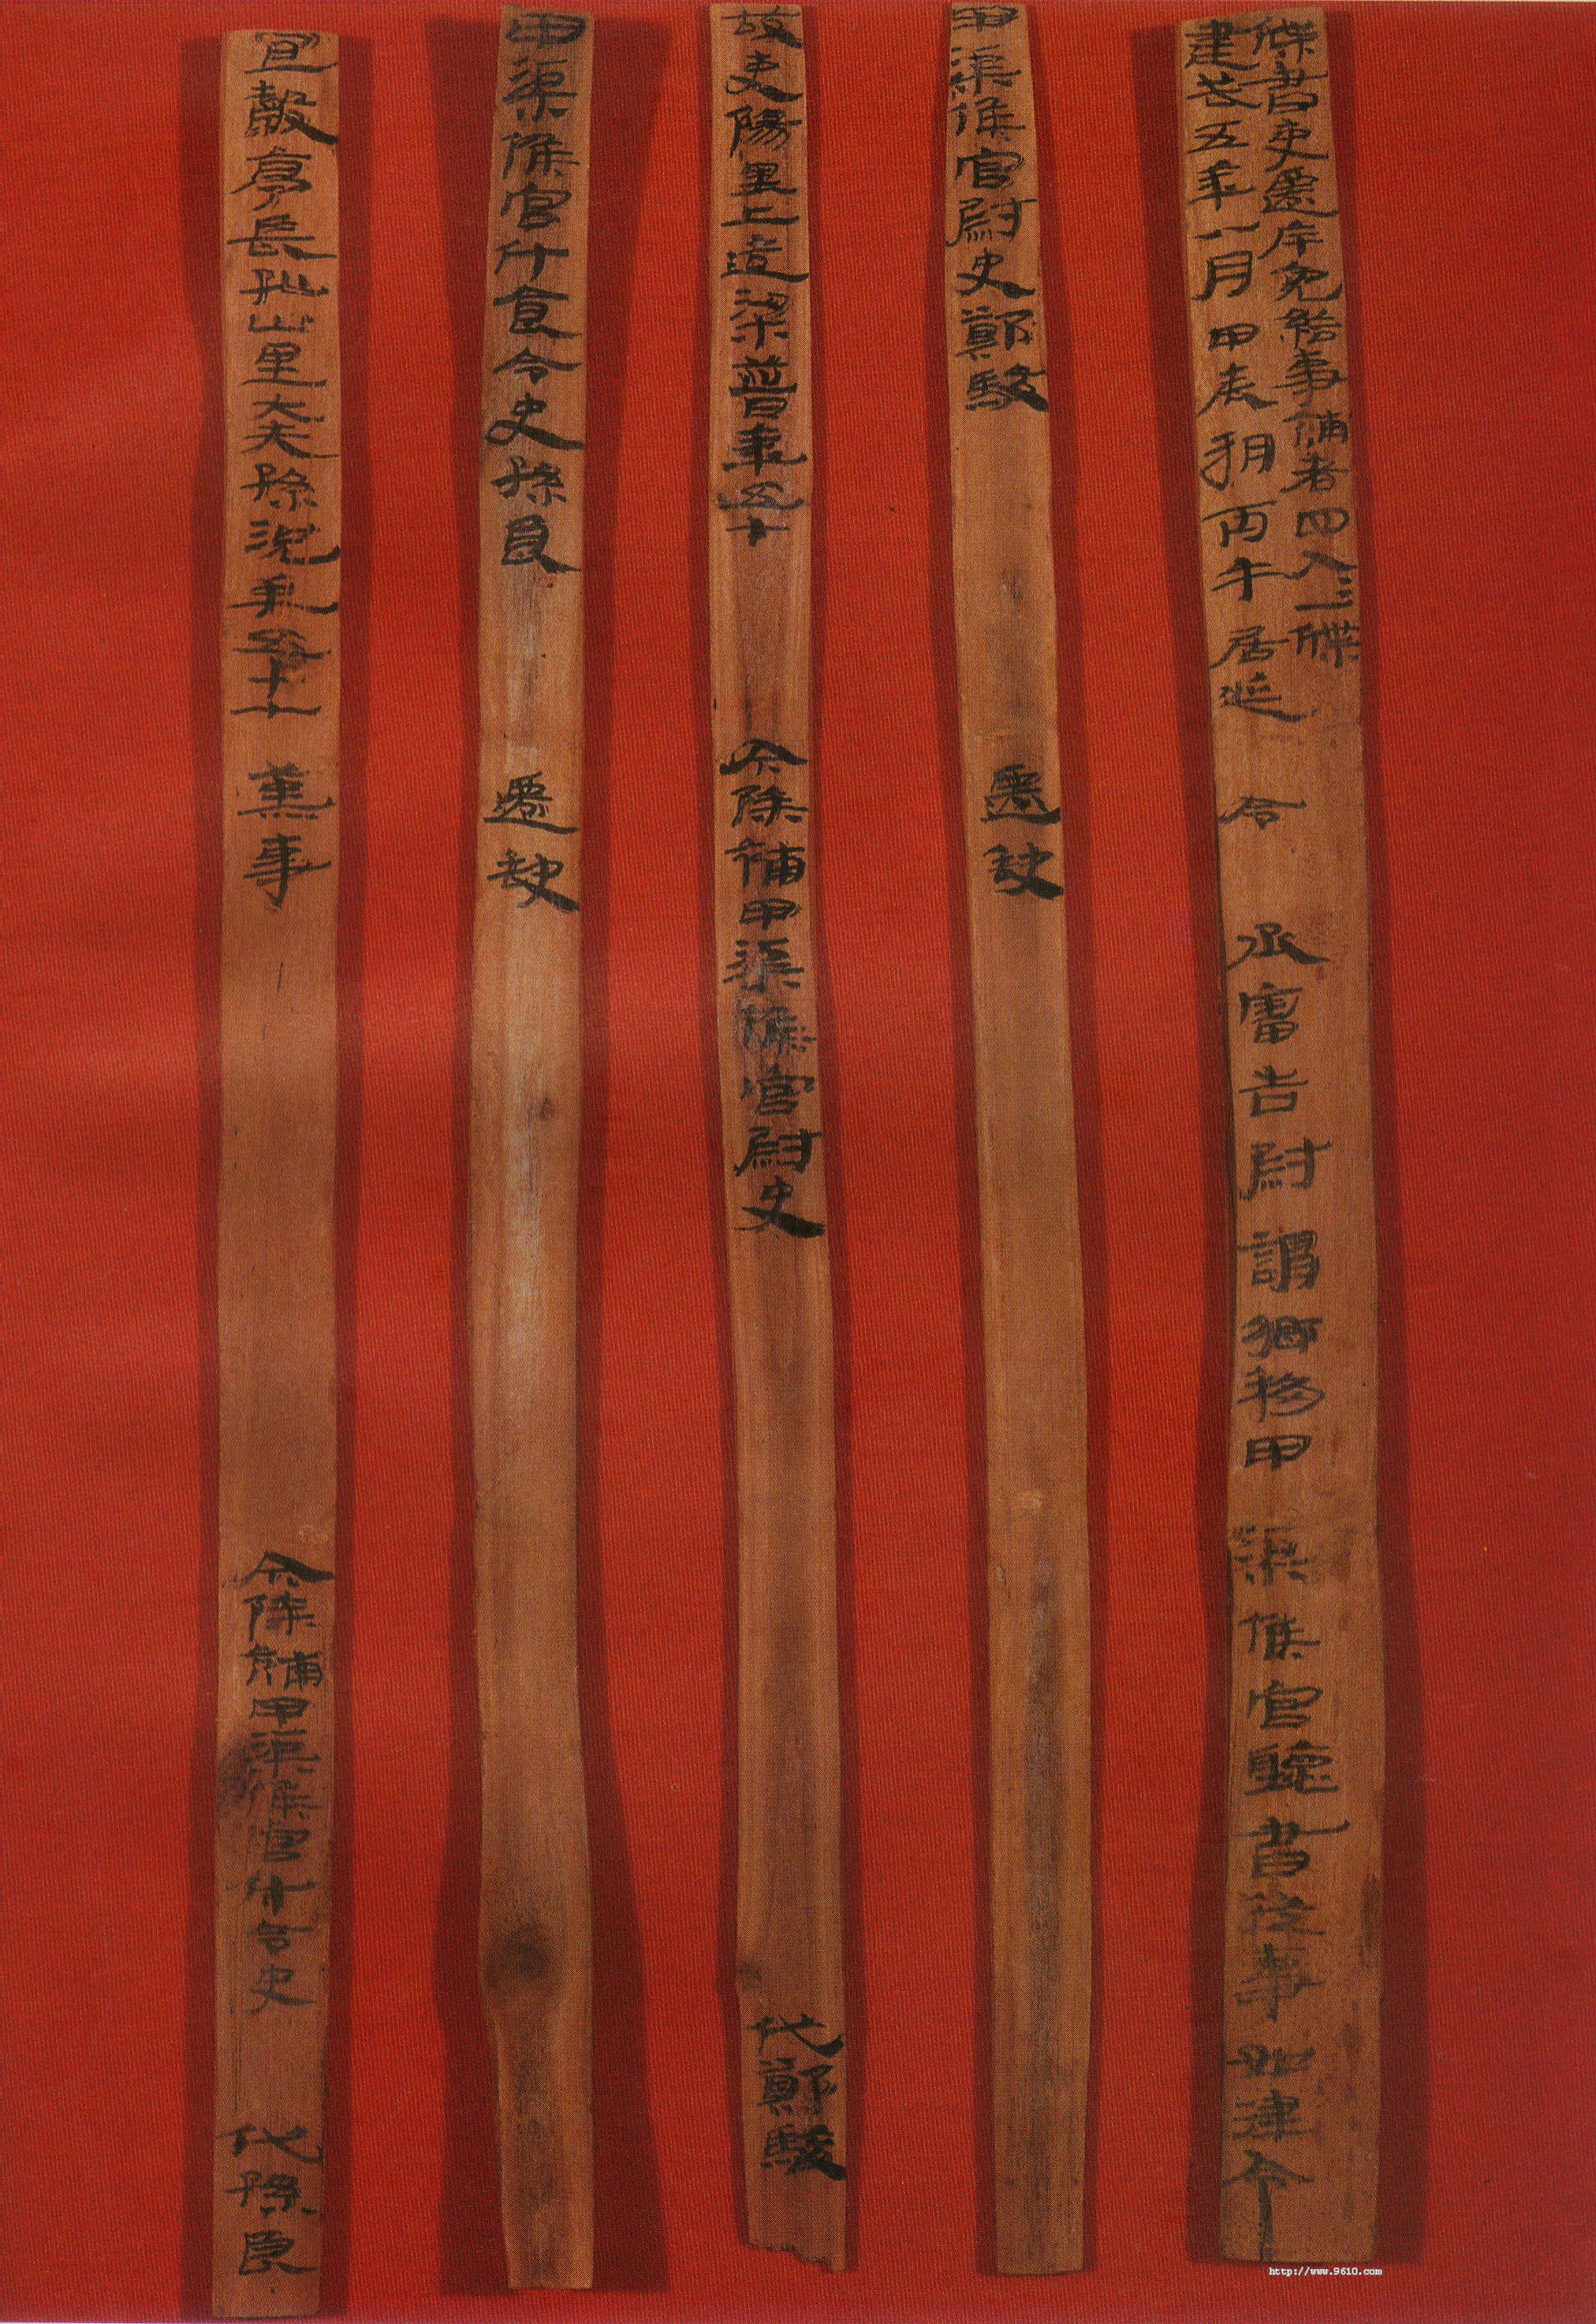 牒書吏遷斥免給事補者四人=一牒
建武五年八月甲辰朔丙午居延令　丞審告尉謂鄉移甲渠候官聽書從事如律令
甲渠候官尉史鄭駿　遷缺
故吏陽里上造梁普年五十　今除補甲渠候官尉史　代鄭駿
甲渠候官斗食令史孫良　遷缺
宜穀亭長孤山里大夫孫況年五十七　薰事　今除補甲渠候官斗令史　代孫良
http://www.9610.com